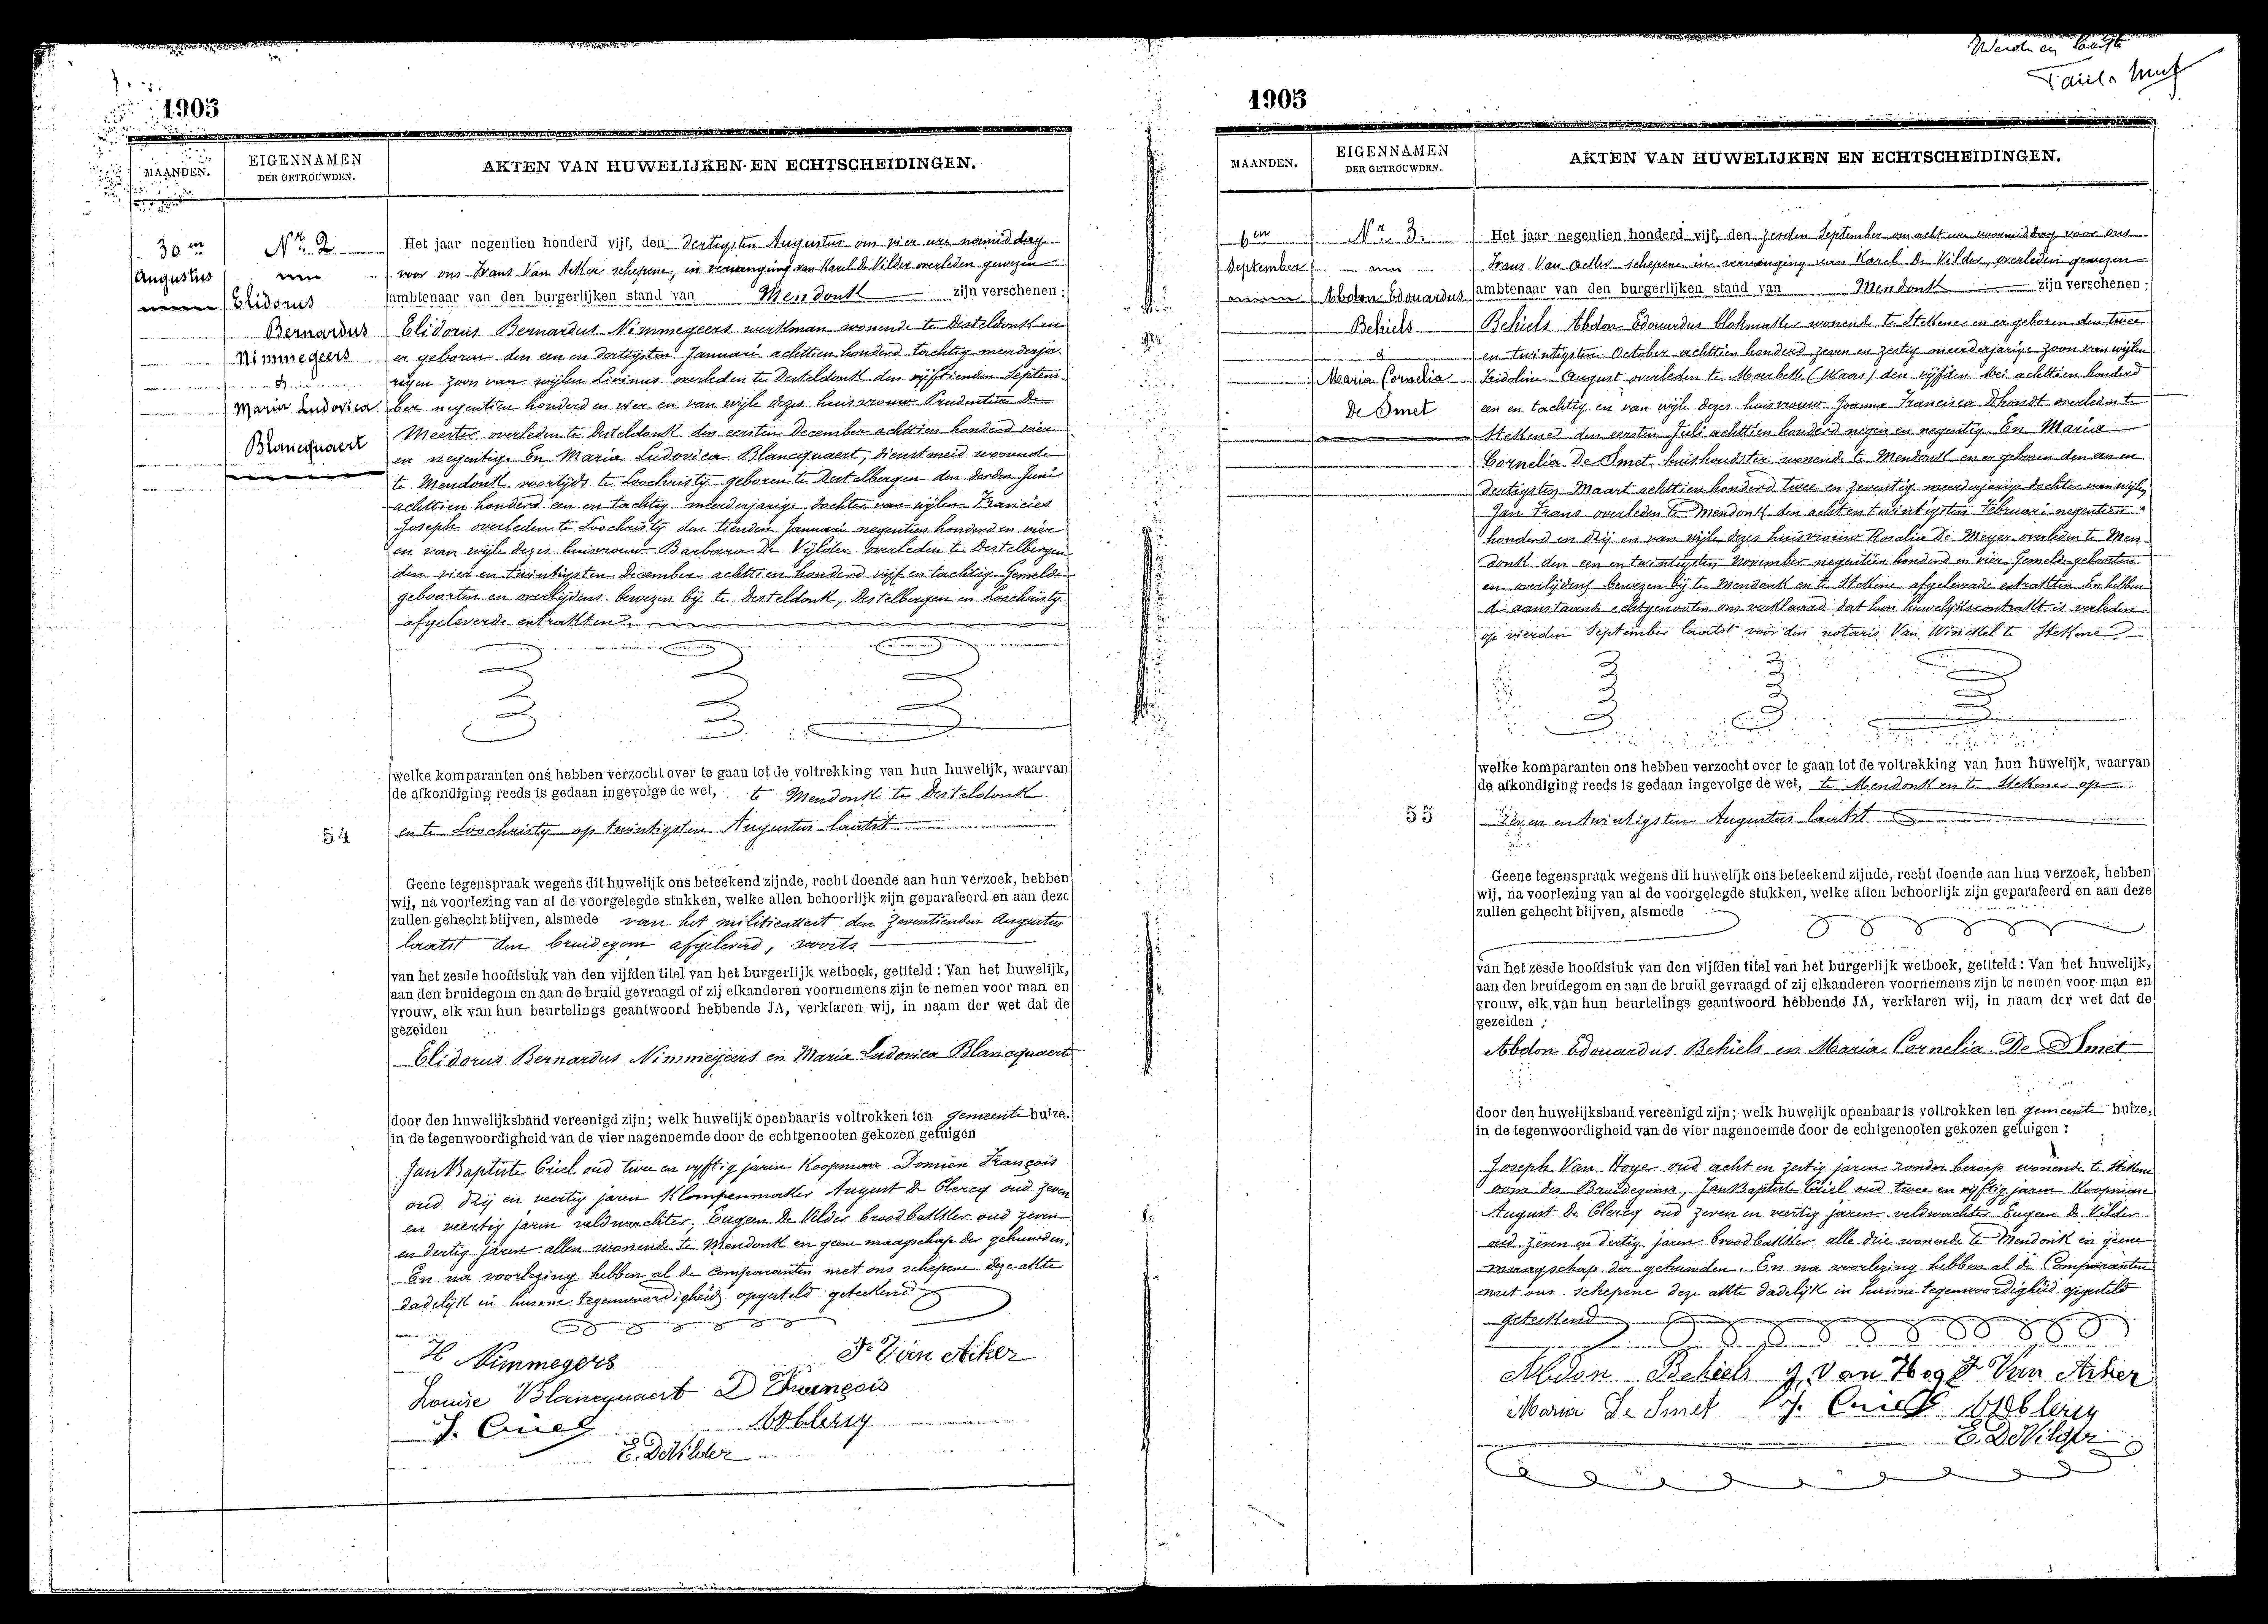 1905
MAANDEN.
EIGENNAMEN
DER GETROUWDEN.
AKTEN VAN HUWELIJKEN EN ECHTSCHEIDINGEN.
30en
Augustus
Nr. 2
Elidorus
Bernardus
Nimmegeers
&
Maria Ludovica
Blancquaert
54
Het jaar negentien honderd vijf, den dertigsten Augustus om vier ure namiddag
voor ons Frans Van Acker schepene, in vervanging van Karel De Vilder overleden gewezen
ambtenaar van den burgerlijken stand van Mendonk zijn verschenen :
Elidorus Bernardus Nimmegeers werkman wonende te Desteldonk en
er geboren den een en dertigsten Januari achttien honderd tachtig meerderja-
rigen zoon van wijlen Livinus overleden te Desteldonk den vijftienden Septem-
ber negentien honderd en vier en van wijle dezes huisvrouw Prudentia De
Meester overleden te Desteldonk den eersten December achttien honderd vier
en negentig. En Maria Ludovica Blancquaert, dienstmeid wonende
te Mendonk voortijds te Loochristy geboren te Destelbergen den derden Juni
achttien honderd een en tachtig meerderjarige dochter van wijlen Francies
Joseph overleden te Loochristy den tienden Januari negentien honderd en vier
en van wijle dezes huisvrouw Barbara De Vijlder overleden te Destelbergen
den vier en twintigsten December achttien honderd vijf en tachtig. Gemelde
geboorten en overlijdens bewezen bij te Desteldonk, Destelbergen en Loochristy
afgeleverde extrakten.
welke komparanten ons hebben verzocht over te gaan tot de voltrekking van hun huwelijk, waarvan
de afkondiging reeds is gedaan ingevolge de wet, te Mendonk te Desteldonk
en te Loochristy op twintigsten Augustus laatst
Geene tegenspraak wegens dit huwelijk ons beteekend zijnde, recht doende aan hun verzoek, hebben
wij, na voorlezing van al de voorgelegde stukken, welke allen behoorlijk zijn geparafeerd en aan deze
zullen gehecht blijven, alsmede van het militieattest den zeventienden Augustus
laatst den bruidegom afgeleverd, voorts
van het zesde hoofdstuk van den vijfden titel van het burgerlijk wetboek, getiteld : Van het huwelijk,
aan den bruidegom en aan de bruid gevraagd of zij elkanderen voornemens zijn te nemen voor man en
vrouw, elk van hun beurtelings geantwoord hebbende JA, verklaren wij, in naam der wet dat de
gezeiden
Elidorus Bernardus Nimmegeers en Maria Ludovica Blancquaert
door den huwelijksband vereenigd zijn; welk huwelijk openbaar is voltrokken ten gemeente huize,
in de tegenwoordigheid van de vier nagenoemde door de echtgenooten gekozen getuigen
Jan Baptiste Criel oud twee en vyftig jaren Koopman Domien François
oud drij en veertig jaren Klompenmaker August De Clercq oud zeven
en veertig jaren veldwachter. Eugeen De Vilder broodbakker oud zeven
en dertig jaren allen wonende te Mendonk en geene maagschap der gehuwden.
En na voorlezing hebben al de comparanten met ons schepene deze akte
dadelijk in hunne tegenwoordigheid opgesteld geteekend
H Nimmegers Fr Van Aker
Louise Blancquaert D François
J. Criel
E. De Vilder
1905
MAANDEN.
EIGENNAMEN
DER GETROUWDEN.
AKTEN VAN HUWELIJKEN EN ECHTSCHEIDINGEN.
6en
September
Nr. 3.
Abdon Edouardus
Behiels
&
Maria Cornelia
De Smet
55
Het jaar negentien honderd vijf, den zesden September om acht ure voormiddag voor ons
Frans Van Acker schepene in vervanging van Karel De Vilder, overleden gewezen
ambtenaar van den burgerlijken stand van Mendonk zijn verschenen :
Behiels Abdon Edouardus blokmaker wonende te Stekene en er geboren den twee
en twintigsten October achttien honderd zeven en zestig meerderjarige zoon van wijlen
Fridolin August overleden te Moerbeke (Waas) den vijfden Mei achttien honderd
een en tachtig en van wijle dezes huisvrouw Joanna Francisca Dhondt overleden te
Stekene den eersten Juli achttien honderd negen en negentig En Maria
Cornelia De Smet huishoudster wonende te Mendonk en er geboren den een en
dertigsten Maart achttien honderd twee en zeventig meerderjarige dochter van wijlen
Jan Frans overleden te Mendonk den acht en twintigsten Februari negentien
honderd en drij en van wijle dezes huisvrouw Rosalia De Meyer overleden te Men-
donk den een en twintigsten November negentien honderd en vier Gemelde geboorten
en overlijdens bewezen bij te Mendonk en te Stekene afgeleverde extrakten En hebben
de aanstaande echtgenooten ons verklaard dat hun huwelijkscontrakt is verleden
op vierden September laatst voor den notaris Van Winckel te Stekene.
welke komparanten ons hebben verzocht over te gaan tot de voltrekking van hun huwelijk, waarvan
de afkondiging reeds is gedaan ingevolge de wet, te Mendonk en te Stekene op
zeven en twintigsten Augustus laatst
Geene tegenspraak wegens dit huwelijk ons beteekend zijnde, recht doende aan hun verzoek, hebben
wij, na voorlezing van al de voorgelegde stukken, welke allen behoorlijk zijn geparafeerd en aan deze
zullen gehecht blijven, alsmede
van het zesde hoofdstuk van den vijfden titel van het burgerlijk wetboek, getiteld : Van het huwelijk,
aan den bruidegom en aan de bruid gevraagd of zij elkanderen voornemens zijn te nemen voor man en
vrouw, elk van hun beurtelings geantwoord hebbende JA, verklaren wij, in naam der wet dat de
gezeiden ;
Abdon Edouardus Behiels en Maria Cornelia De Smet
door den huwelijksband vereenigd zijn; welk huwelijk openbaar is voltrokken ten gemeente huize,
in de tegenwoordigheid van de vier nagenoemde door de echtgenooten gekozen getuigen :
Joseph Van Hoye oud acht en zestig jaren zonder beroep wonende te Stekene
oom des Bruidegoms, Jan Baptiste Criel oud twee en vyftig jaren Koopman
August De Clercq oud zeven en veertig jaren veldwachter Eugeen De Vilder
oud zeven en dertig jaren broodbakker alle drie wonende te Mendonk en geene
maagschap der gehuwden. En na voorlezing hebben al de Comparanten
met ons schepene deze akte dadelijk in hunne tegenwoordigheid opgesteld
geteekend
Abdon Behiels J. Van Hoy F Van Acker
Maria De Smet J. Criel
E. De Vilder